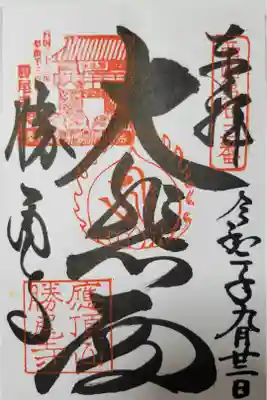 奉拝
令和二年九月廿二日
大悲殿
勝尾寺
應頂山
勝尾寺